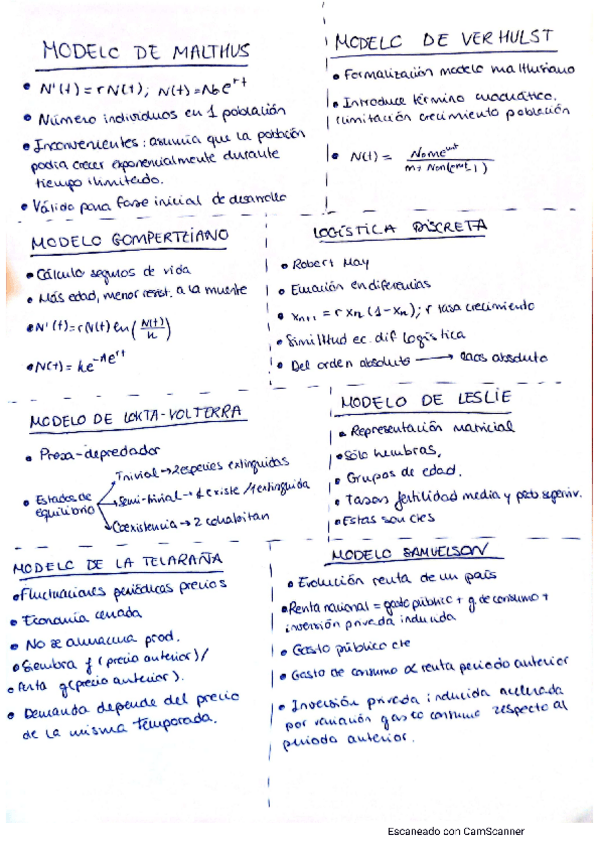 MODELO DE MALTHUS
• N'(t) = rN(t); N(t) = N₀e^rt
• Número individuos en 1 población
• Inconvenientes: asumía que la población
podía crecer exponencialmente durante
tiempo ilimitado.
• Válido para fase inicial de desarrollo
MODELO DE VERHULST
• Formalización modelo malthusiano
• Introduce término cuadrático.
Limitación crecimiento población
• N(t) =
MODELO GOMPERTZIANO
• Cálculo seguros de vida
• Más edad, menor resist. a la muerte
• N'(t) = rN(t) ln (N(t)/k)
• N(t) = ke^-Ae^rt
LOGÍSTICA DISCRETA
• Robert May
• Ecuación en diferencias
• xn+1 = r xn (1-xn); r tasa crecimiento
• Similitud ec. dif logística
• Del orden absoluto → caos absoluto
MODELO DE LOKTA-VOLTERRA
• Presa-depredador
• Estados de
equilibrio
Trivial → 2 especies extinguidas
Semi-trivial → 1 existe / 1 extinguida
Coexistencia → 2 cohabitan
MODELO DE LESLIE
• Representación matricial
• Sólo hembras,
• Grupos de edad.
• Tasas fertilidad media y prob superviv.
• Estas son ctes
MODELO DE LA TELARAÑA
• Fluctuaciones periódicas precios
• Economía cerrada
• No se almacena prod.
• Siembra f (precio anterior) /
• g(precio anterior).
• Demanda depende del precio
de la misma temporada.
MODELO SAMUELSON
• Evolución renta de un país
• Renta nacional = gasto público + g de consumo +
inversión privada inducida
• Gasto público cte
• Gasto de consumo ∝ renta periodo anterior
• Inversión privada inducida acelerada
por variación gasto consumo respecto al
periodo anterior.
Escaneado con CamScanner